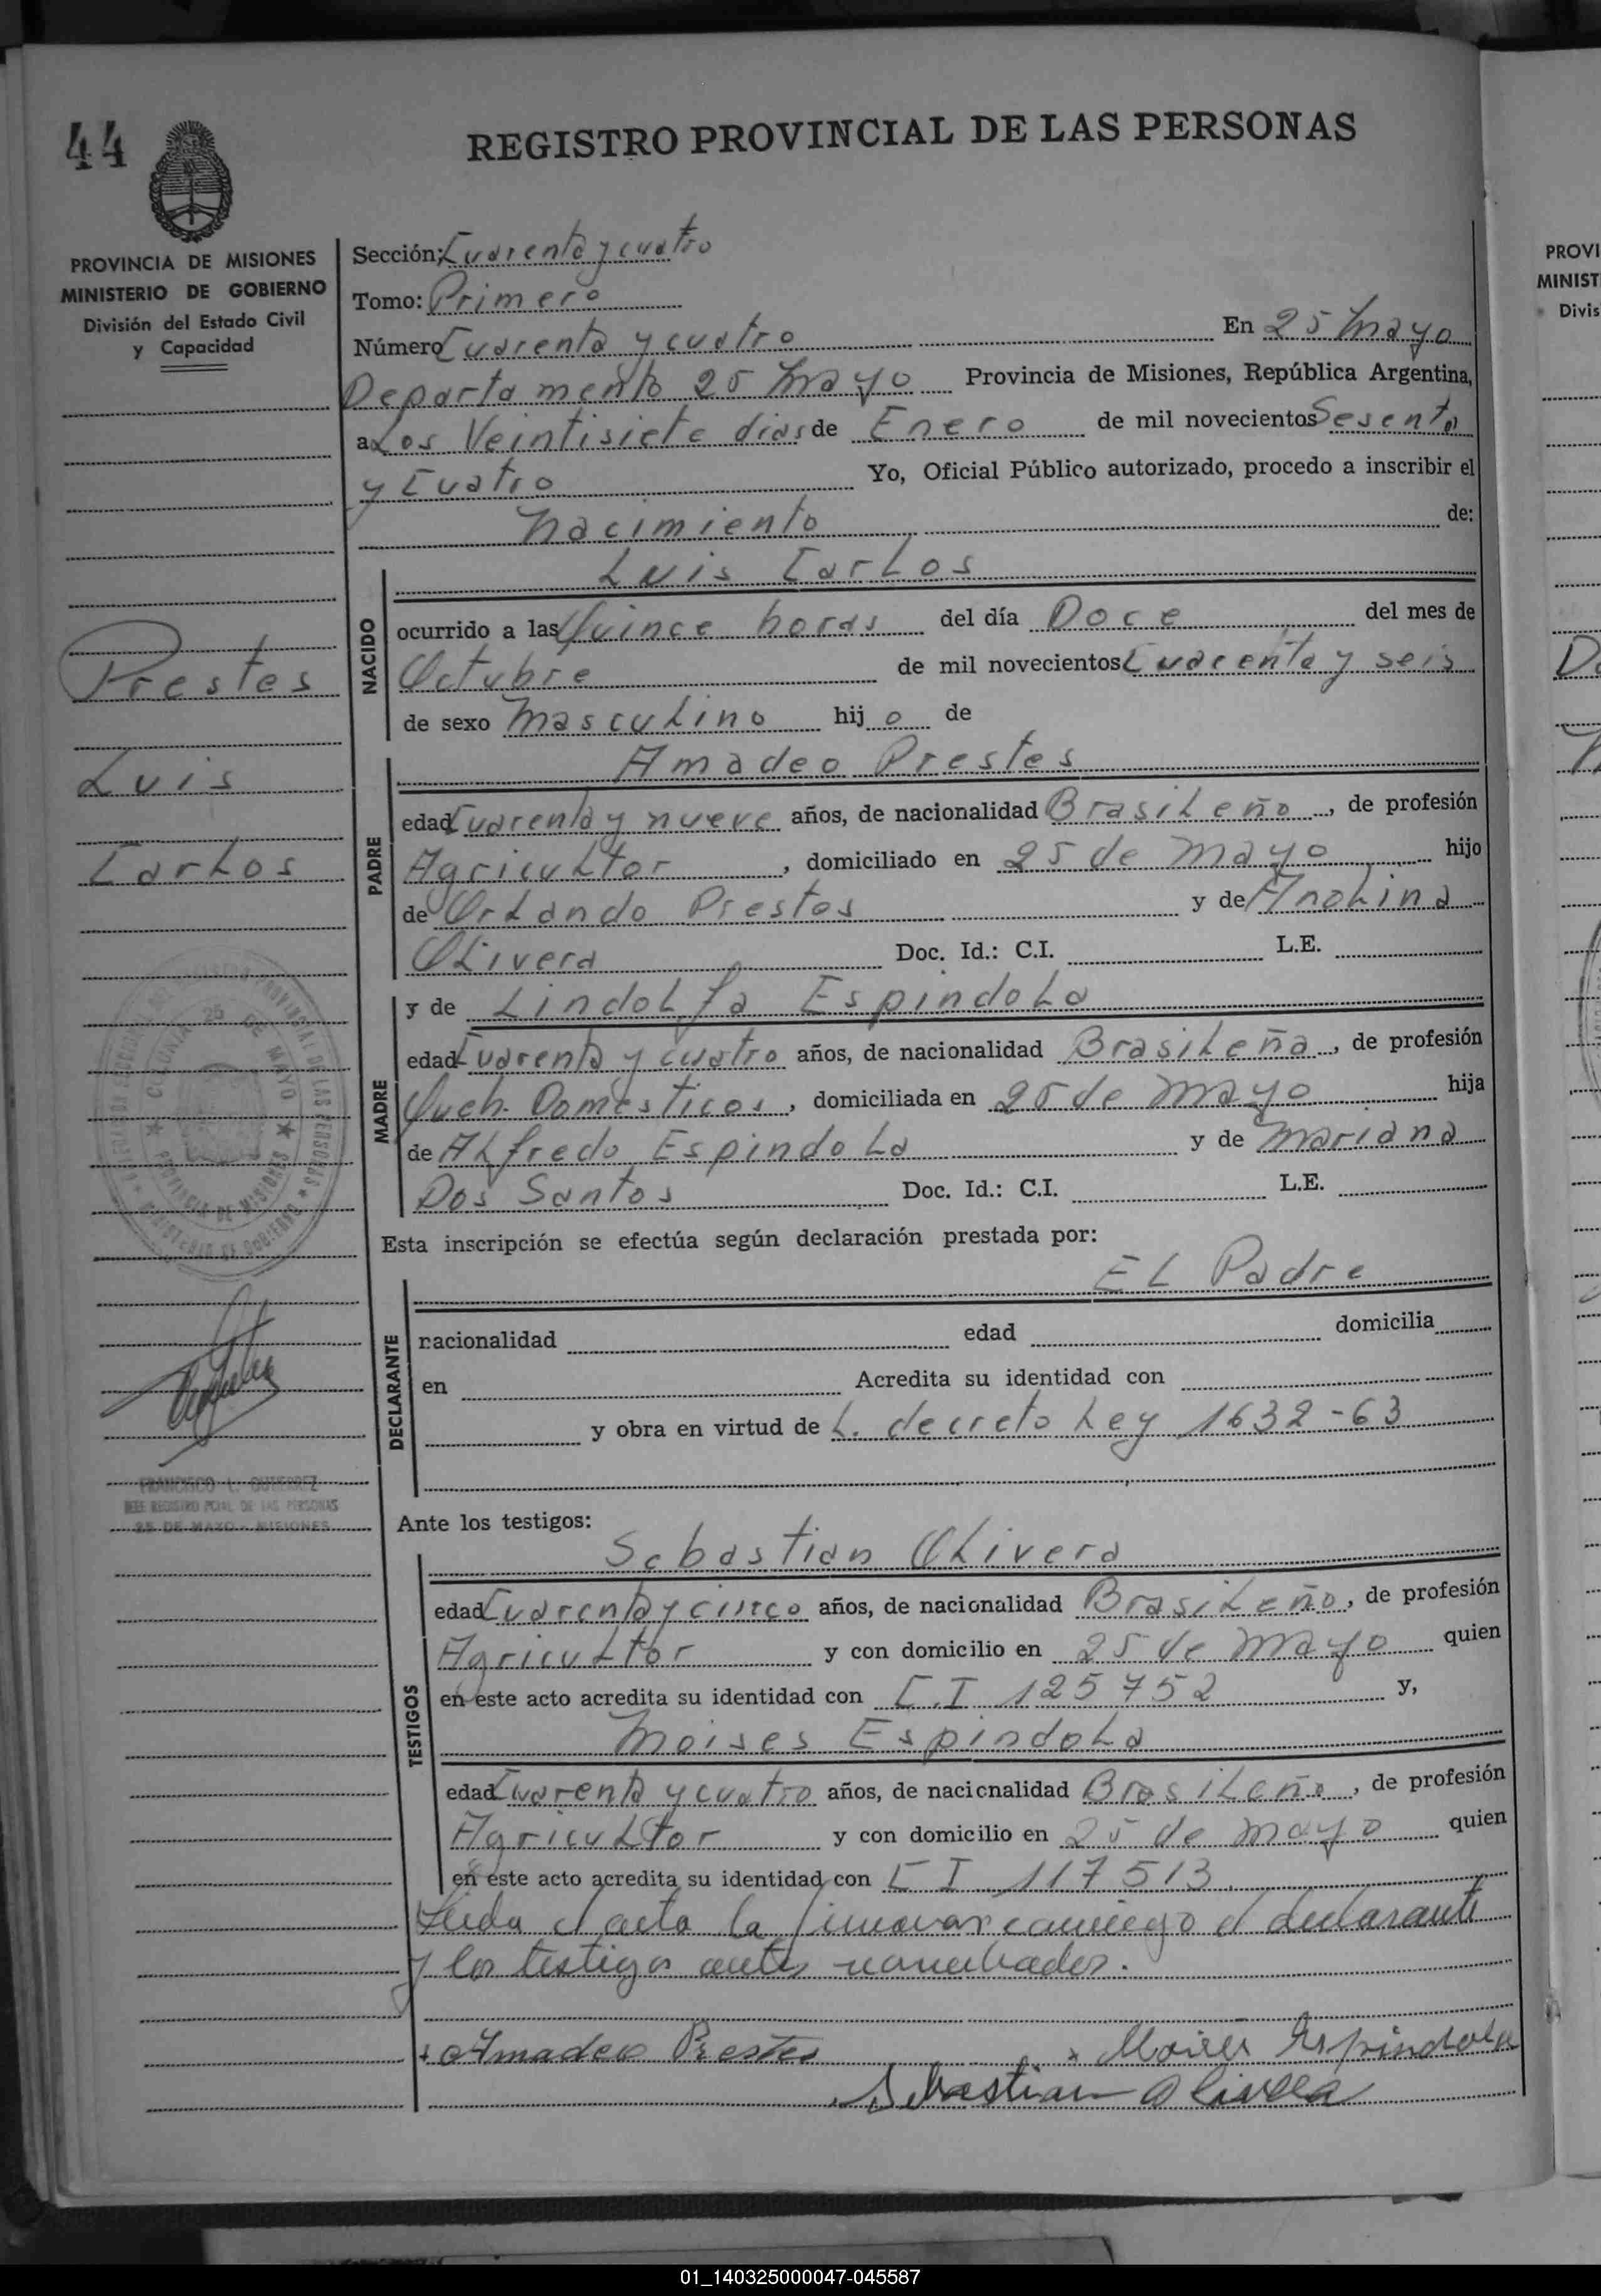 44
REGISTRO PROVINCIAL DE LAS PERSONAS
PROVINCIA DE MISIONES
MINISTERIO DE GOBIERNO
División del Estado Civil
y Capacidad
Prestes
Luis
Carlos
COLONIA 25 DE MAYO
PROVINCIA DE MISIONES
FRANCISCO L. GUTIERREZ
JEFE REGISTRO PCIAL DE LAS PERSONAS
25 DE MAYO - MISIONES
Sección: Cuarenta y cuatro
Tomo: Primero
Número Cuarenta y cuatro En 25 Mayo
Departamento 25 Mayo Provincia de Misiones, República Argentina,
a Los Veintisiete dias de Enero de mil novecientos Sesenta
y Cuatro Yo, Oficial Público autorizado, procedo a inscribir el
Nacimiento de:
Luis Carlos
NACIDO
ocurrido a las Quince horas del día Doce del mes de
Octubre de mil novecientos Cuarenta y seis
de sexo Masculino hijo de
Amadeo Prestes
PADRE
edad Cuarenta y nueve años, de nacionalidad Brasileño, de profesión
Agricultor, domiciliado en 25 de Mayo hijo
de Orlando Prestes y de Anolina
Olivera Doc. Id.: C.I. L.E.
y de Lindolfa Espindola
MADRE
edad Cuarenta y cuatro años, de nacionalidad Brasileña, de profesión
Queh. Domésticos, domiciliada en 25 de Mayo hija
de Alfredo Espindola y de Mariana
Dos Santos Doc. Id.: C.I. L.E.
Esta inscripción se efectúa según declaración prestada por:
El Padre
DECLARANTE
nacionalidad edad domicilia
en Acredita su identidad con
y obra en virtud de L. decreto Ley 1632-63
Ante los testigos:
Sebastian Olivera
TESTIGOS
edad Cuarenta y cinco años, de nacionalidad Brasileño, de profesión
Agricultor y con domicilio en 25 de Mayo quien
en este acto acredita su identidad con C.I 125752 y,
Moises Espindola
edad Cuarenta y cuatro años, de nacionalidad Brasileño, de profesión
Agricultor y con domicilio en 25 de Mayo quien
en este acto acredita su identidad con C I 117513.
Leida el acta la firmaron conmigo el declarante
y los testigos ante nombrados.
Amadeo Prestes Moises Espindola
Sebastian Olivera
PROVI
MINIST
Divis
01_140325000047-045587